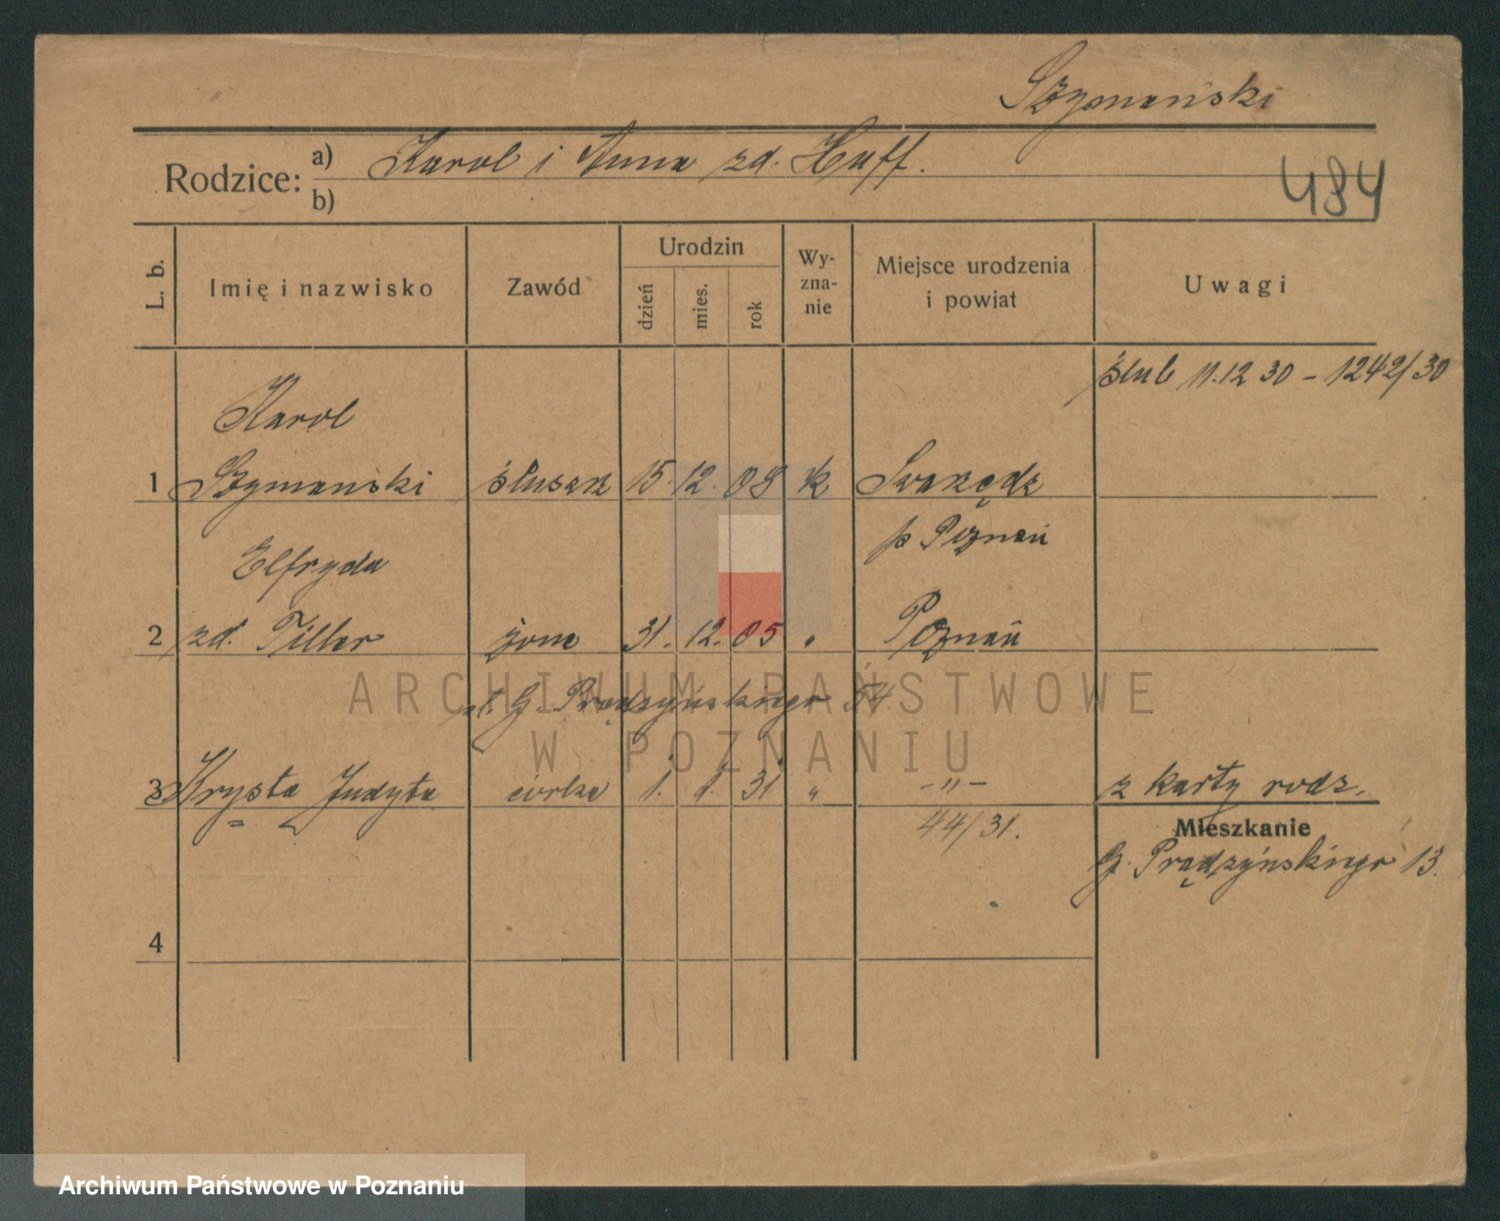 Szymański
Rodzice: a) Karol i Anna zd. Huff.
b)
484
L. b.
Imię i nazwisko
Zawód
Urodzin
dzień
mies.
rok
Wy-
zna-
nie
Miejsce urodzenia
i powiat
Uwagi
ślub 11.12 30 - 1242/30
Karol
1 Szymański ślusarz 15. 12. 08 k Swarzędz
p Poznań
Elfryda
2 zd. Tiller żona 31. 12. 05 " Poznań
G. Prądzyńskiego 54.
ARCHIWUM PAŃSTWOWE
W POZNANIU
3 Krysta Judyta córka 1. 1. 31 " -"- z karty rodz.
44/31.
Mieszkanie
G. Prądzyńskiego 13.
4
Archiwum Państwowe w Poznaniu